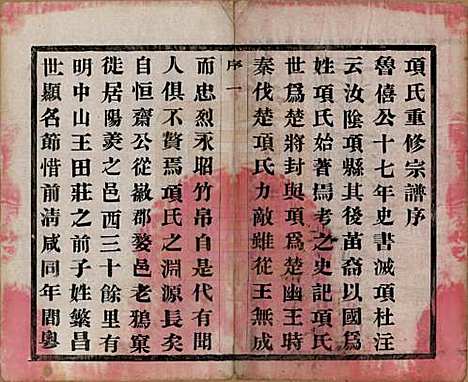 項氏重修宗譜序
魯僖公十七年史書滅項杜注
云汝陰項縣其後苗裔以國爲
姓項氏始著焉考之史記項氏
世爲楚將封與項爲楚幽王時
秦伐楚項氏力敵雖從王無成
序一
而忠烈永昭竹帛自是代有聞
人俱不贅焉項氏之淵源長矣
自恒齋公從徽郡婺邑老鴉窠
徙居陽羨之邑西三十餘里有
明中山王田莊之前子姓繁昌
世顯名節惜前清咸同年間粵